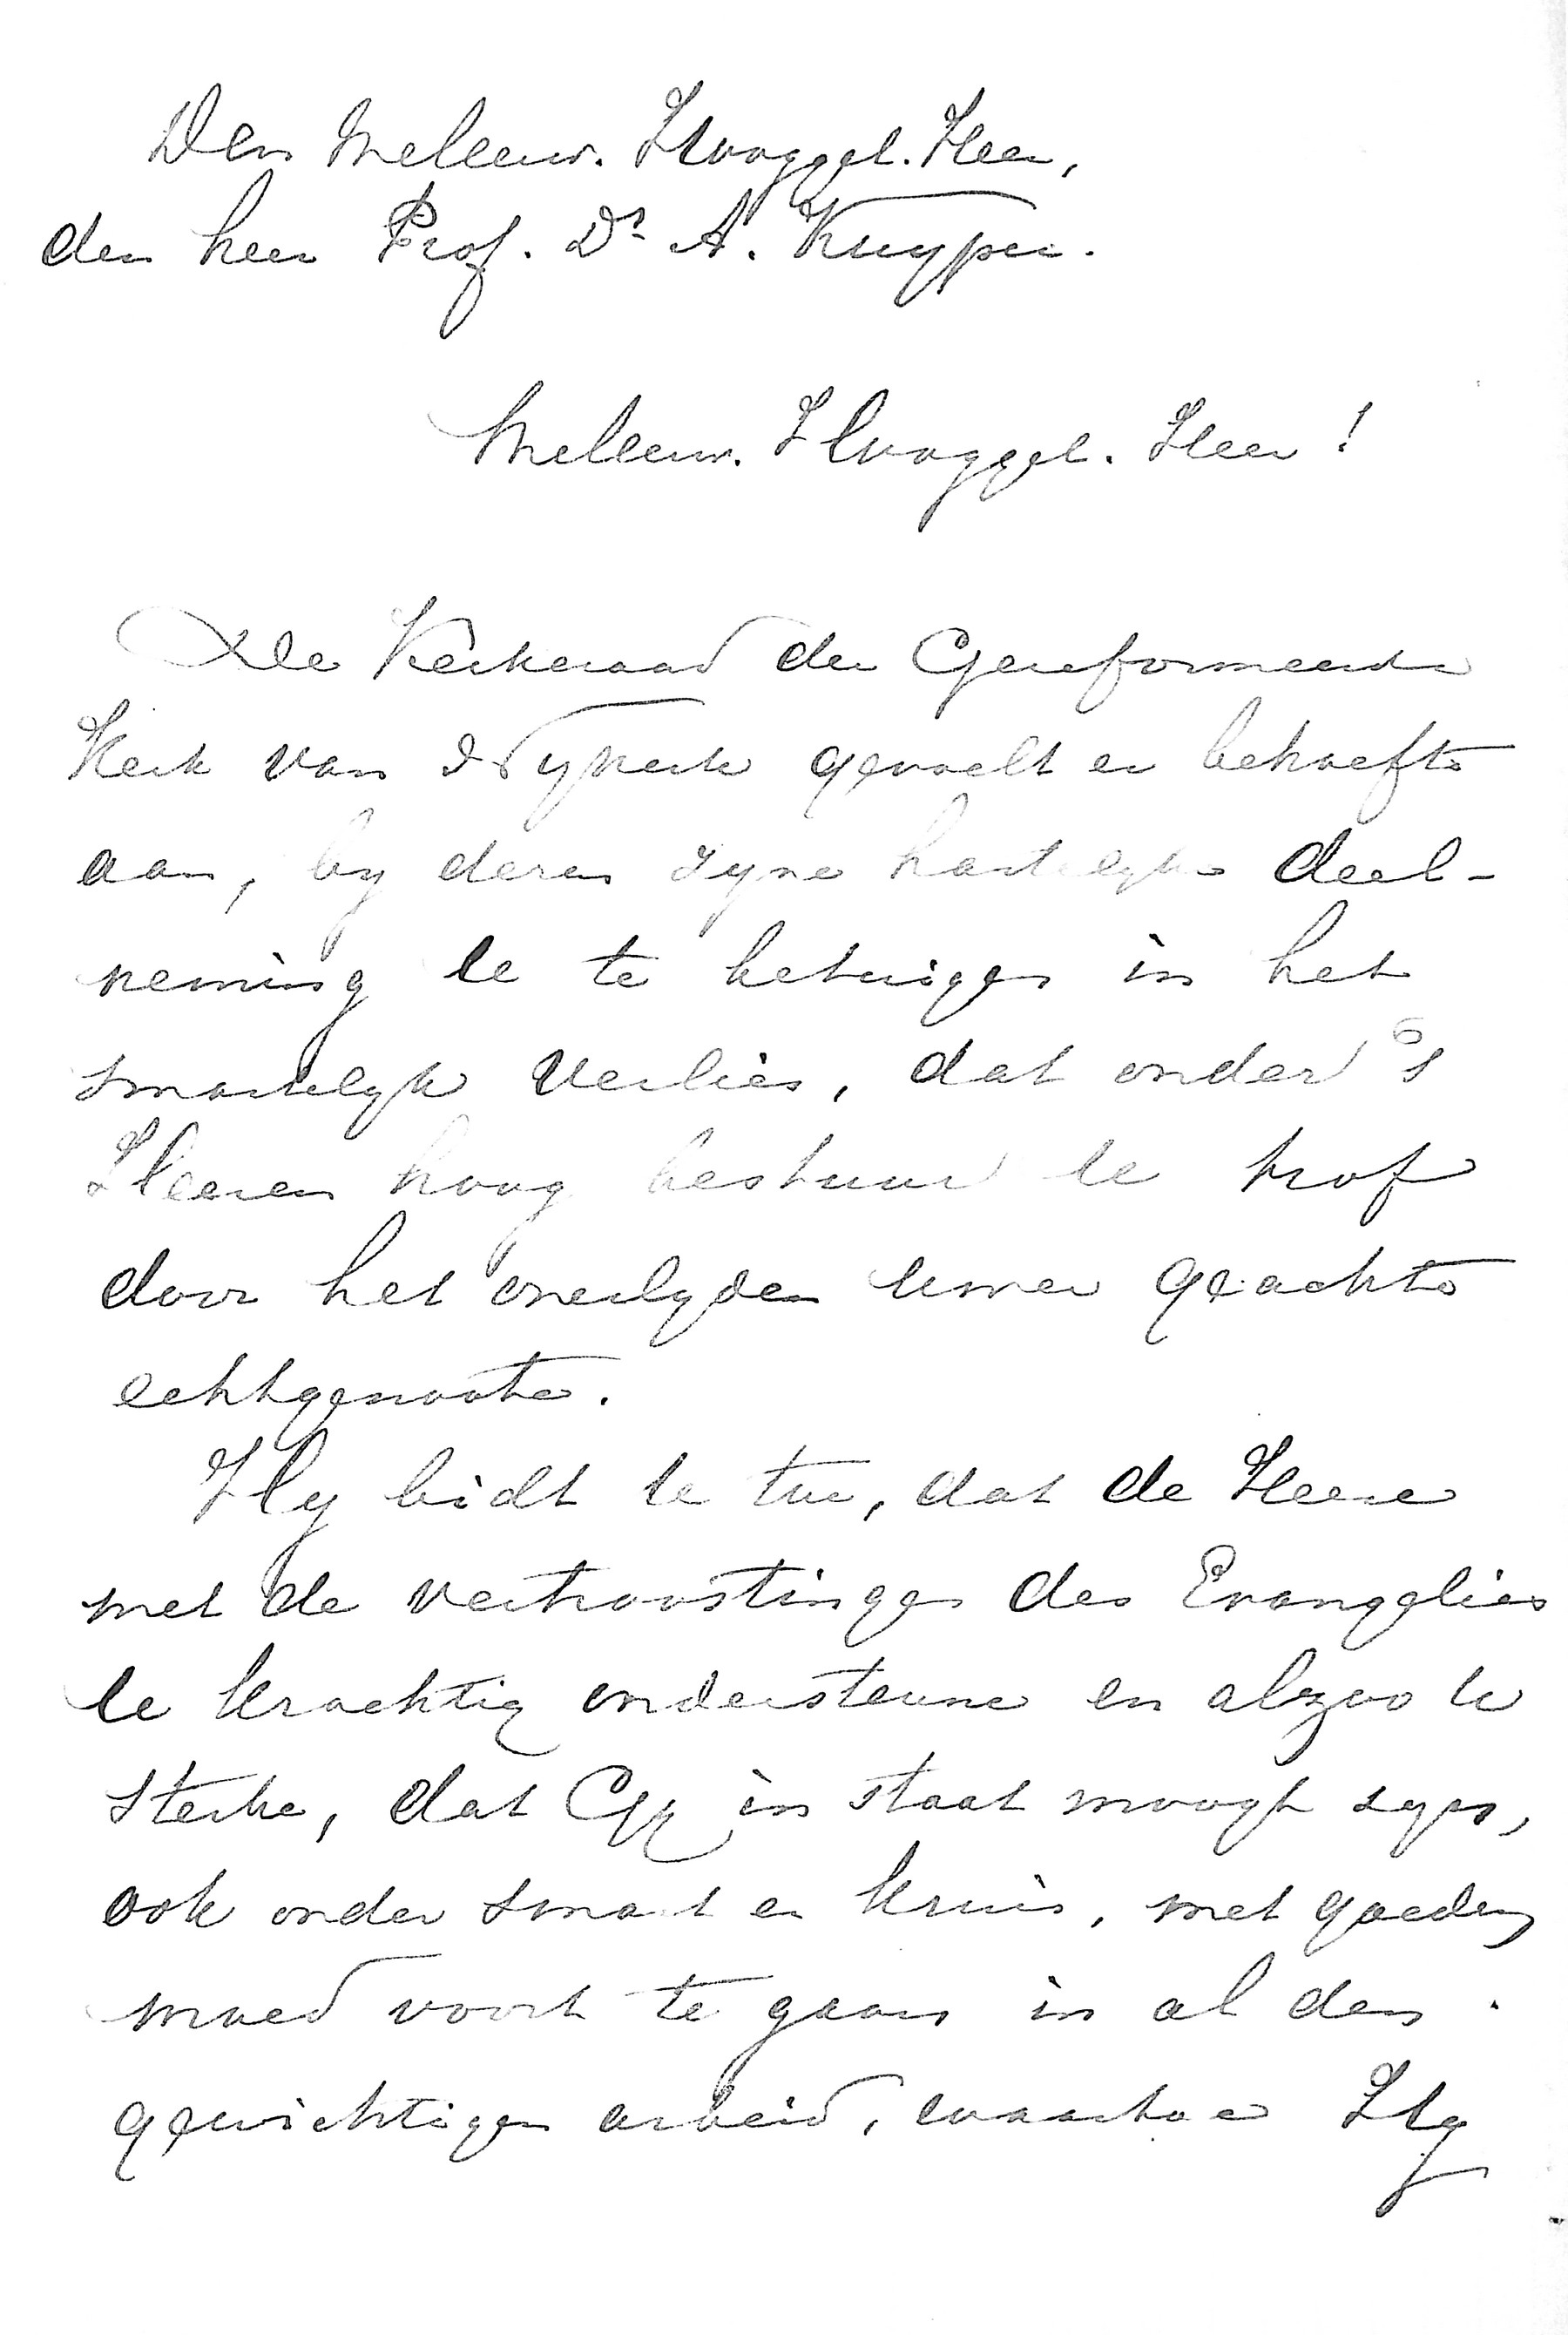 Den Weleerw. Hooggel. Heer,
den heer Prof. Dr. A. Kuyper.
Weleerw. Hooggel. Heer!
De Kerkeraad der Gereformeerde
Kerk van Nijkerk gevoelt er behoefte
aan, bij dezen zijne hartelijke deel-
neming U te betuigen in het
smartelijk verlies, dat onder 's
Heeren hoog bestuur U trof
door het overlijden Uwer geachte
echtgenoote.
Hij bidt U toe, dat de Heere
met de vertroostingen des Evangelies
U krachtig ondersteune en alzoo U
sterke, dat Gij in staat moogt zijn,
ook onder smart en kruis, met goeden
moed voort te gaan in al den
gewichtigen arbeid, waartoe Hij